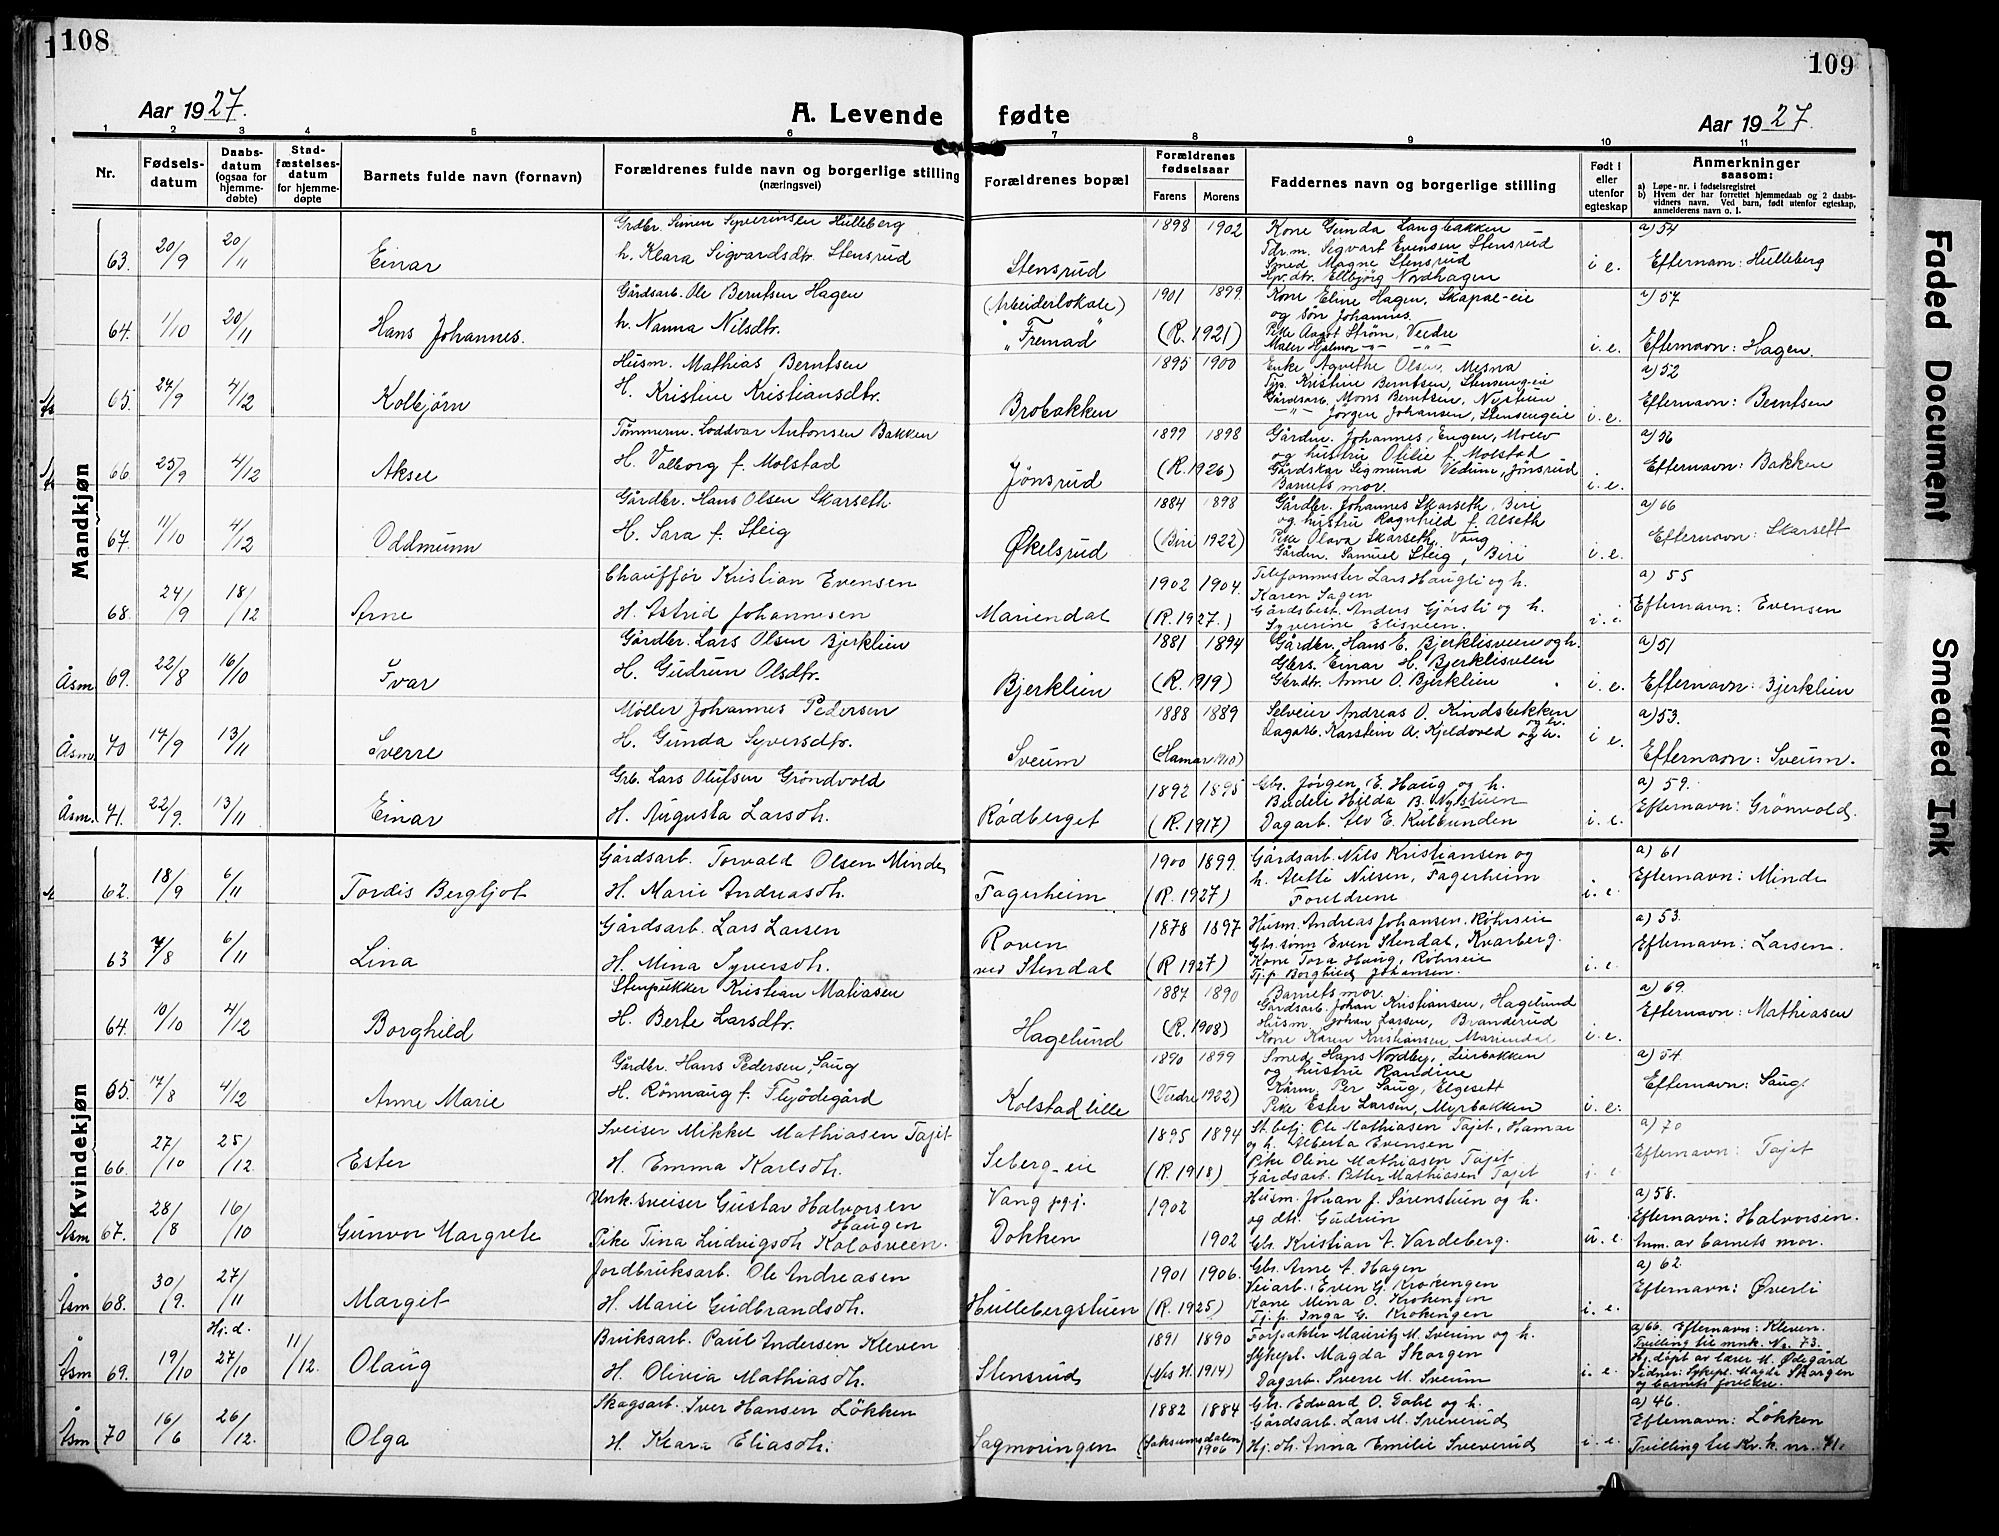 108
109
Aar 1927.
A. Levende fødte
Aar 1927.
1 2 3 4 5 6 7 8 9 10 11
Nr.
Fødselsdatum
Daabsdatum (ogsaa for hjemmedøbte)
Stadfæstelsesdatum for hjemmedøpte
Barnets fulde navn (fornavn)
Forældrenes fulde navn og borgerlige stilling (næringsvei)
Forældrenes bopæl
Forældrenes fødselsaar
Farens Morens
Faddernes navn og borgerlige stilling
Født i eller utenfor egteskap
Anmerkninger saasom:
a) Løpe-nr. i fødselsregistret
b) Hvem der har forrettet hjemmedaab og 2 daabsvidners navn. Ved barn, født utenfor egteskap, anmelderens navn o. l.
Mandkjøn
63. 20/9 20/11 Einar
Grdbr. Simen Syverinsen Hulleberg
h. Klara Sigvardsdtr. Stensrud
Stensrud
1898 1902
Kone Gunda Langbakken
Fdr.m. Sigvart Evensen Stensrud
Smed Magne Stensrud
Gpr.dtr. Ellbjørg Nordhagen
i e.
a) 54
Efternavn: Hulleberg
64. 1/10 20/11 Hans Johannes.
Gårdsarb. Ole Berntsen Hagen
h. Nanna Nilsdtr.
(Arbeiderlokale)
"Fremad"
1901 1899.
(R. 1921)
Kone Eline Hagen, Skapal-eie
og søn Johannes.
Pike Aagot Strøm, Veldre
Maler Hjalmar -"- -"-
i. e.
a) 57
Efternavn: Hagen.
65. 24/9 4/12 Kolbjørn
Husm. Mathias Berntsen
H. Kristine Kristiansdtr.
Brobakken
1895 1900
Enke Agnethe Olsen, Mesna
Tjp. Kristine Berntsen, Stensengeie
Gårdsarb. Mons Berntsen, Nystuen
-"- Jörgen Johansen, Stensengeie
i. e.
a) 52
Efternavn: Berntsen
66 25/9 4/12 Aksel
Tömmerm. Loddvar Antonsen Bakken
H. Valborg f. Molstad
Jønsrud
1899 1898
(R. 1926)
Gårdm. Johannes Engen, Moelv
og hustru Otilie f. Molstad
Gårdskar Sigmund Vedum, Jønsrud
Barnets mor.
i. e.
a) 56
Efternavn: Bakken
67. 11/10 4/12 Oddmunn
Gårdbr. Hans Olsen Skarseth.
H. Sara f. Steig
Økelsrud
1884 1898
(Biri 1922)
Gårdbr. Johannes Skarseth, Biri
og hustru Ragnhild f. Alseth
Pike Olava Skarseth, Vang
Gårdm. Samuel Steig, Biri
i. e.
a) 66
Efternavn: Skarsett
68. 24/9 18/12 Arne
Chauffør Kristian Evensen
H. Astrid Johannesen
Mariendal
1902 1904.
(R. 1927.)
Telefonmester Lars Haugli og h.
Karen Sagen
Gårdsbest. Anders Gjørsli og h.
Syverine Elisveen.
i. e
a) 55
Efternavn: Evensen
Åsm 69. 22/8 16/10 Ivar
Gårdbr. Lars Olsen Bjerklien
H. Gudrun Olsdtr.
Bjerklien
1881 1894
(R. 1919)
Gårdbr. Hans E. Bjerklisveen og h.
Gbrs. Einar H. Bjerklisveen
Gbrdtr. Anne O. Bjerklien
i. e.
a) 51
Efternavn: Bjerklien
Åsm. 70 17/9 13/11 Sverre
Møller Johannes Pedersen
H. Gunda Syversdtr.
Sveum
1888 1889
(Hamar 1910)
Selveier Andreas O. Kindsbakken og h.
Dagarb. Karstein A. Kjeldvold og h.
i e.
a) 53.
Efternavn: Sveum.
Åsm. 71. 22/9. 13/11 Einar
Grb. Lars Olufsen Gröndvold
H. Augusta Larsdh.
Rødberget
1892 1895
(R. 1917)
Gbr. Jørgen E. Haug og h.
Budeie Hilda B. Nylstuen
Dagarb. Alv E. Kulbunden
i. e.
a) 59.
Efternavn: Grönvold.
Kvindekjøn
62. 18/9 6/11 Tordis Bergljot
Gårdsarb. Torvald Olsen Minde
H. Marie Andreasdh.
Fagerheim
1900 1899.
(R. 1927)
Gårdsarb. Nils Kristiansen og
h. Aletti Nilsen, Fagerheim
Foreldrene
i. e
a) 61
Efternavn: Minde
63 7/8 6/11 Lina
Gårdsarb. Lars Larsen
H. Mina Syversdh.
Roven
ved Stendal
1878 1897
(R 1927)
Husm. Andreas Johansen. Röhrseie
Gbr. sønn Even Stendal, Kvarberg.
Kone Tora Haug, Röhrseie
Tj.p Borghild Johansen.
i. e.
a) 53.
Efternavn: Larsen.
64. 10/10 4/12 Borghild
Stenpukker Kristian Matiasen
H. Berte Larsdtr.
Hagelund
1887 1890
(R. 1908)
Barnets mor.
Gårdsarb. Johan Kristiansen, Hagelund
Husm. Johan Larsen, Branderud
Kone Karen Kristiansen Mariendal
i. e.
a) 69.
Efternavn: Mathiasen
65. 17/8 4/12 Anne Marie
Gårdbr. Hans Pedersen Saug
H. Rönnaug f. Flyödegård
Kolstad lille
1890 1899
(Veldre 1922)
Smed Hans Nordby, Lierbakken
og hustru Randine
Kårm. Per Saug, Elgesett
Pike Ester Larsen, Myrbakken
i. e.
a) 54.
Efternavn: Saug.
66. 27/10 25/12. Ester
Sveiser Mikkel Mathiasen Tajet
H. Emma Karlsdh.
Seberg-eie
1895 1894
(R. 1918)
St. betj. Ole Mathiasen Tajet, Hamar
og h. Alberta Evensen
Pike Oline Mathiasen Tajet
Gårdsarb. Petter Mathiasen Tajet
i. e
a) 70
Efternavn: Tajet
Åsm 67. 28/8 16/10 Gunvor Margrete
Unk. sveiser Gustav Halvorsen Haugen
Pike Tina Ludvigsdh. Kolosveen.
Vang pgj.
Dokken
1902
1902
Husm. Johan J. Sørenstuen og h.
og dtr. Gudrun
Gbr. Kristian A. Vardeberg.
u. e.
a) 58.
Efternavn: Halvorsen.
Anm. av barnets mor.
Åsm 68. 30/9. 27/11 Margit
Jordbruksarb. Ole Andreasen
H. Marie Gudbrandsdh.
Hullebergstuen
1901 1906.
(R. 1925)
Gbr. Arne A. Hagen
Veiarb. Even G. Krokengen
Kone Mina O. Krokengen
Tj. p. Inga G. Krokengen
i. e.
a) 62.
Efternavn: Øverli
Åsm 69. 19/10 Hj.d. 27/10 11/12. Olaug
Bruksarb. Paul Andersen Kleven
H. Olivia Mathiasdh.
Stensrud
1891 1890
(Nes H. 1914)
Forpakter Mauritz M. Sveum og h.
Sykepl. Magda Skorgen
Dagarb. Sverre M. Sveum
i. e
a) 66. Efternavn: Kleven.
Tvilling til mnk. Nr. 73.
Hj. døpt av lærer M. Ødegård
Vidner: Sykepl. Magda Skorgen
og barnets foreldre.
Åsm 70 16/6 26/12. Olga
Skogsarb. Iver Hansen Løkken
H. Klara Eliasdh.
Sagmoringen
1882 1884
(Saksumsdalen 1906)
Gbr. Edvard O. Gahl og h.
Gårdsarb. Lars M. Sveverud
Hj. dh. Anna Emilie Sveverud
i. e
a) 46.
Efternavn: Løkken
Tvilling til Kv. k. nr. 71.
Faded Document
Smeared Ink